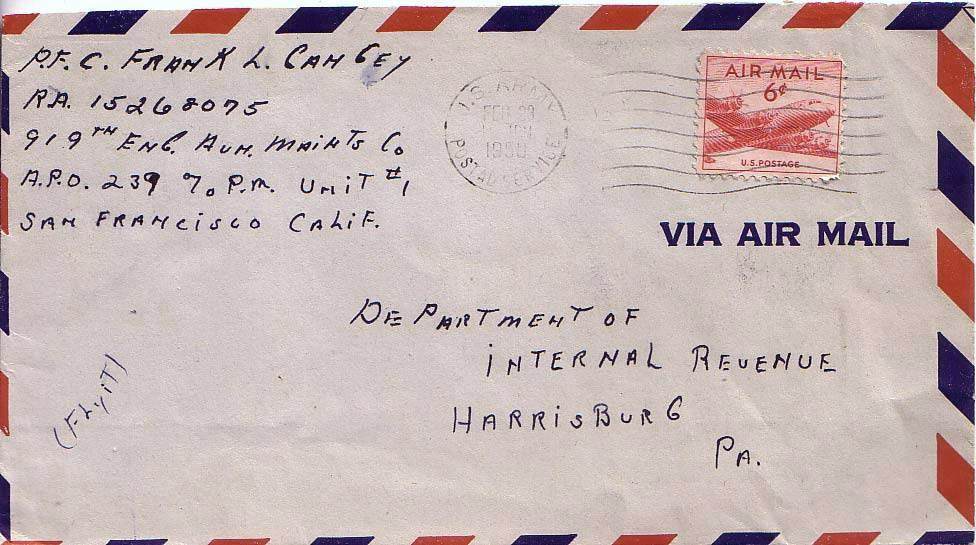 P.F.C. FRANK L. CANGEY
RA. 15268075
919TH ENG. AVN. MAINTS CO
A.P.O. 239 % P.M. UNIT #1
SAN FRANCISCO CALIF.
U.S. ARMY
FEB 28
1950
POSTAL SERVICE
AIR MAIL
6¢
U.S. POSTAGE
VIA AIR MAIL
DEPARTMENT OF
INTERNAL REVENUE
HARRISBURG
PA.
(FLYIT)